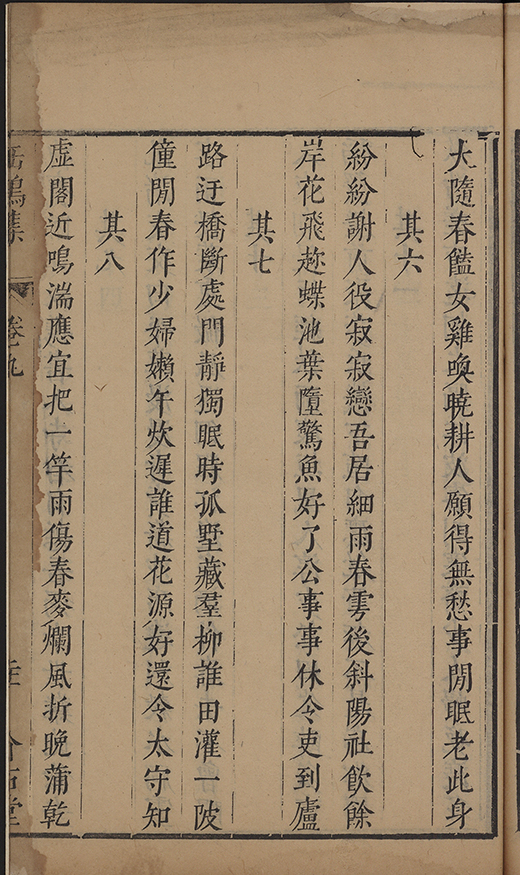 犬隨春饁女雞喚曉耕人願得無愁事閒眠老此身
其六
紛紛謝人役寂寂戀吾居細雨春雩後斜陽社飲餘
岸花飛趂蝶池葉墮驚魚好了公事事休令吏到廬
其七
路迂橋斷處門靜獨眠時孤墅藏羣柳誰田灌一陂
僮閒春作少婦嬾午炊遲誰道花源好還令太守知
其八
虛閣近鳴湍應宜把一竿雨傷春麥爛風折晚蒲乾
鳴集 卷九